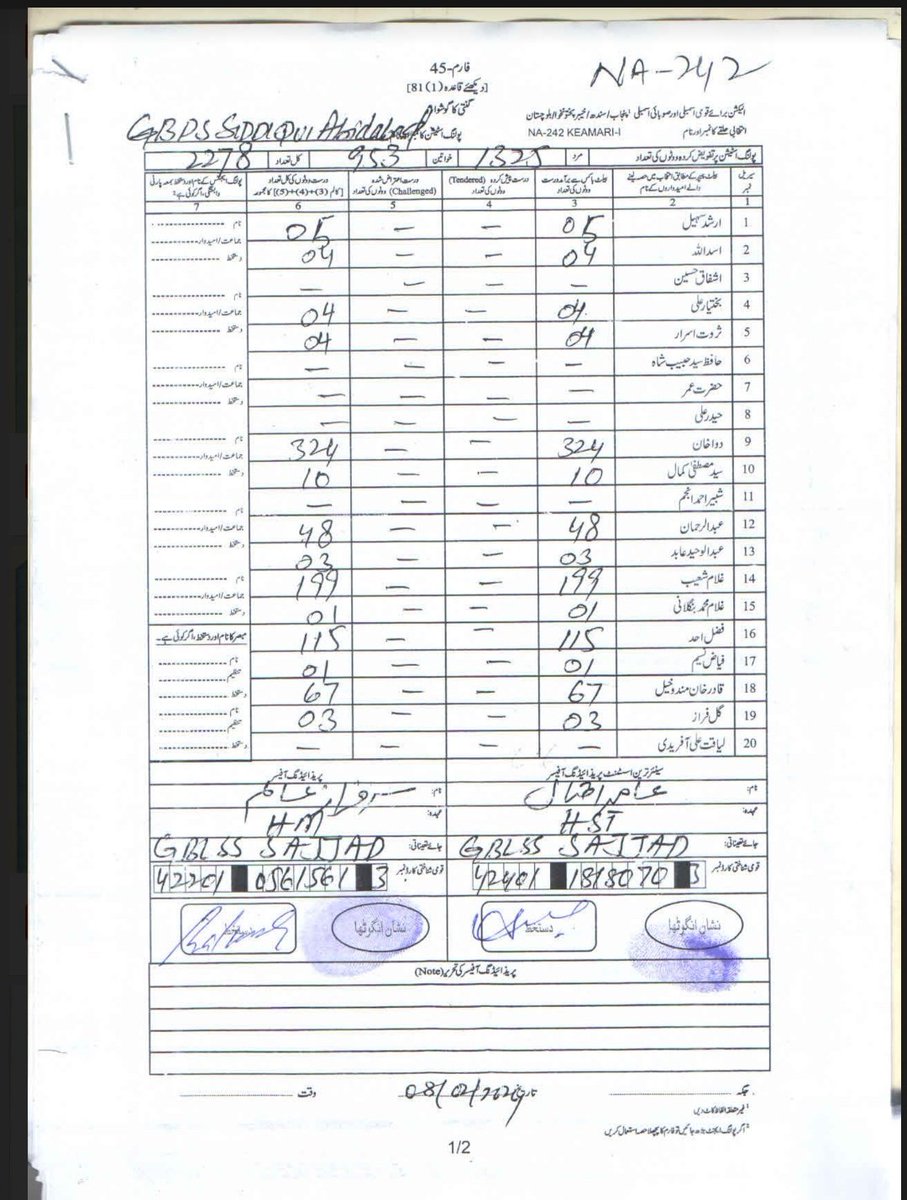 فارم-45
[دیکھئے قاعدہ (1)81]
NA-242
گنتی کا گوشوارہ
الیکشن برائے قومی اسمبلی اور صوبائی اسمبلی پنجاب/سندھ/خیبر پختونخوا/بلوچستان
GBPS SIDDIQUI Abidabad
انتخابی حلقے کا نمبر اور نام NA-242 KEAMARI-I
پولنگ اسٹیشن پر تفویض کردہ ووٹوں کی تعداد مرد 1325 خواتین 953 کل تعداد 2278
سیریل نمبر
بیلٹ پیپر کے مطابق انتخاب میں حصہ لینے والے امیدواروں کے نام
بیلٹ باکس سے برآمد درست ووٹوں کی تعداد
درست پیش کردہ (Tendered) ووٹوں کی تعداد
درست اعتراض شدہ (Challenged) ووٹوں کی تعداد
درست ووٹوں کی کل تعداد [کالم (3)+(4)+(5)] کا مجموعہ
1 2 3 4 5 6 7
1 ارشد سہیل 05 – – 05
2 اسد اللہ 04 – – 04
3 اشفاق حسین – – – –
4 بختیار علی 04 – – 04
5 ثروت اسرار 04 – – 04
6 حافظ سید حبیب شاہ – – – –
7 حضرت عمر – – – –
8 حیدر علی – – – –
9 دوا خان 324 – – 324
10 سید مصطفیٰ کمال 10 – – 10
11 شبیر احمد انجم – – – –
12 عبدالرحمان 48 – – 48
13 عبدالوحید عابد 03 – – 03
14 غلام شعیب 199 – – 199
15 غلام محمد بنگلانی 01 – – 01
16 فضل احد 115 – – 115
17 فیاض نسیم 01 – – 01
18 قادر خان مندوخیل 67 – – 67
19 گل فراز 03 – – 03
20 لیاقت علی آفریدی – – – –
نام
جماعت/امیدوار
دستخط
نام
جماعت/امیدوار
دستخط
نام
جماعت/امیدوار
دستخط
نام
جماعت/امیدوار
دستخط
نام
جماعت/امیدوار
دستخط
نام
جماعت/امیدوار
دستخط
مبصر کا نام اور دستخط، اگر کوئی ہے۔
نام
تنظیم
دستخط
نام
تنظیم
دستخط
سینئر ترین اسسٹنٹ پریذائیڈنگ آفیسر
پریذائیڈنگ آفیسر
نام:
نام:
عہدہ: HST
عہدہ: HM
جائے تعیناتی: GBLSS SAJJAD
جائے تعیناتی: GBLSS SAJJAD
قومی شناختی کارڈ نمبر 42401 1818070 3
قومی شناختی کارڈ نمبر 42201 0561561 3
نشان انگوٹھا
دستخط
نشان انگوٹھا
پریذائیڈنگ آفیسر کی تحریر (Note)
جگہ
تاریخ 08/02/2024
وقت
¹غیر متعلقہ الفاظ کاٹ دیں
²اگر پولنگ ایجنٹ بڑھ جائیں تو فارم کا پچھلا حصہ استعمال کریں
1/2